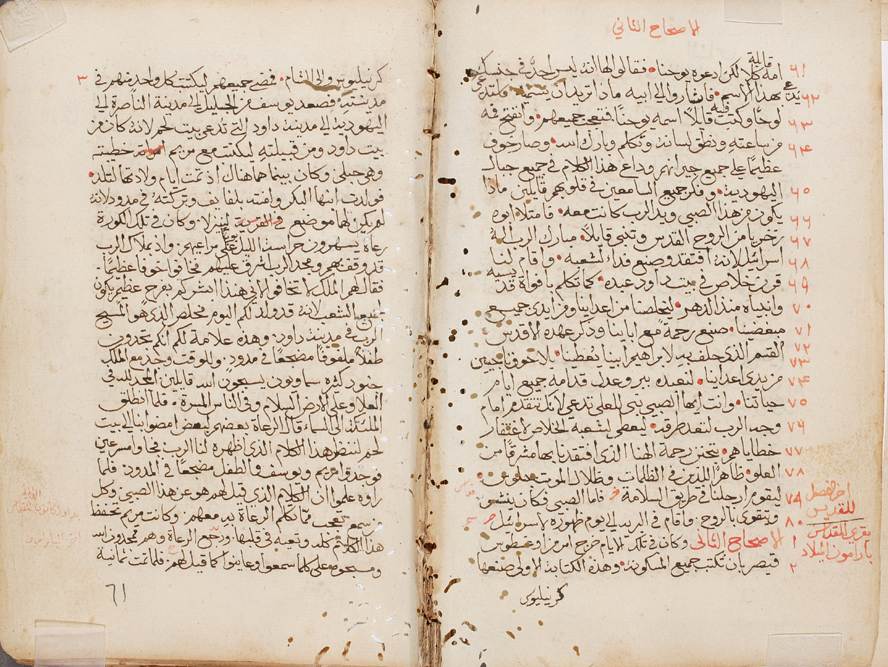 الاصحاح الثاني
قايلة
٦١ امه كلا لكن ادعوه يوحنا فقالوا لها انه ليس احد في جنسك
٦٢ يدعى بهذا الاسم فاشاروا الى ابيه ما تريد ان يسميه
٦٣ لوحا وكتب قايلا اسمه يوحنا فتعجب جميعهم وانفتح فيه
٦٤ من ساعته ونطق لسانه وتكلم وبارك الله وصار خوف
عظيما على جميع جيرانهم وذاع هذا الكلام في جميع جبال
٦٥ اليهودية وفكر جميع السامعين في قلوبهم قايلين ماذا
٦٦ يكون من هذا الصبي ويد الرب كانت معه فامتلا ابوه
٦٧ زخريا من الروح القدس وتنبى قايلا مبارك الرب اله
٦٨ اسرائيل لانه افتقد وصنع فداء لشعبه واقام لنا
٦٩ قرن خلاص في بيت داود عبده كما تكلم بافواه قديسيه
٧٠ وانبياه منذ الدهر ليخلصنا من اعداينا ومن ايدي جميع
٧١ مبغضينا صنع رحمة مع اباينا وذكر عهده الاقدس
٧٢ القسم الذي حلف به لابراهيم ابينا ليعطنا بلا خوف
٧٣
٧٤ من يدي اعداينا لنعبده ببر وعدل قدامه جميع ايام
٧٥ حياتنا وانت ايها الصبي نبي العلي تدعى لانك تنقدم امام
٧٦ وجه الرب لتعد طرقه لتعطي لشعبه الخلاص لغفران
٧٧ خطاياهم بتحنن رحمة الهنا الذي افتقدنا بها مشرقا من
٧٨ العلو ظاهرا للذين في الظلمات وظلال الموت جلوس
٧٩ ليقوم ارجلنا في طريق السلامة فاما الصبي فكان ينشو
٨٠ ويتقوى بالروح واقام في البرية الى يوم ظهوره لاسرائيل
١ الاصحاح الثاني وكان في تلك الايام خرج امر من اوغسطس
٢ قيصر بان تكتب جميع المسكونة وهذه الكتابة الاولى صنعها
كرينليوس
اخر الفصل
للقدس
يقرى للقداس
بارامون الميلاد
٣ كرينليوس والي الشام فمضى جميعهم ليكتتب كل واحد منهم في
مدينته فصعد يوسف من الجليل من مدينة الناصرة الى
اليهودية الى مدينة داود التي تدعى بيت لحم لانه كان من
بيت داود ومن قبيلته ليكتتب مع مريم خطيبته
وهي حبلى وكان بينما هما هناك اذ تمت ايام ولادتها لتلد
فولدت ابنها البكر ولفته بلفايف وتركته في مدود لانه
لم يكن لهما موضع منزلا وكان في تلك الكورة
رعاة يسهرون حراسة الليل على مراعيهم واذ بملاك الرب
قد وقف بهم ومجد الرب اشرق عليهم فخافوا خوفا عظيما
فقال لهم الملاك لا تخافوا الاني هنذا ابشركم بفرح عظيم يكون
لجميع الشعب لانه قد ولد لكم اليوم مخلص الذي هو المسيح
الرب في مدينة داود وهذه علامة لكم انكم تجدون
طفلا ملفوفا مضجعا في مدود وللوقت وجد مع الملاك
جنود كثيرة سماويون يسبحون الله قايلين المجد لله في
العلا وعلى الارض السلام وفي الناس المسرة فلما انطلق
الملايكة الى السماء قال الرعاة بعضهم لبعض امضوا بنا الى بيت
لحم لننظر هذا الكلام الذي اظهره لنا الرب فجاوا مسرعين
فوجدوا مريم ويوسف والطفل مضجعا في المدود فلما
راوه علموا ان الكلام الذي قيل لهم هو عن هذا الصبي وكل
من سمع تعجب مما تكلم الرعاة به معهم وكانت مريم تحفظ
هذا الكلام كله وتعيه في قلبها ورجع الرعاة وهم يمجدون الله
ويسبحوه على كلما سمعوا وعاينوا كما قيل لهم فلما تمت ثمانية
٦١